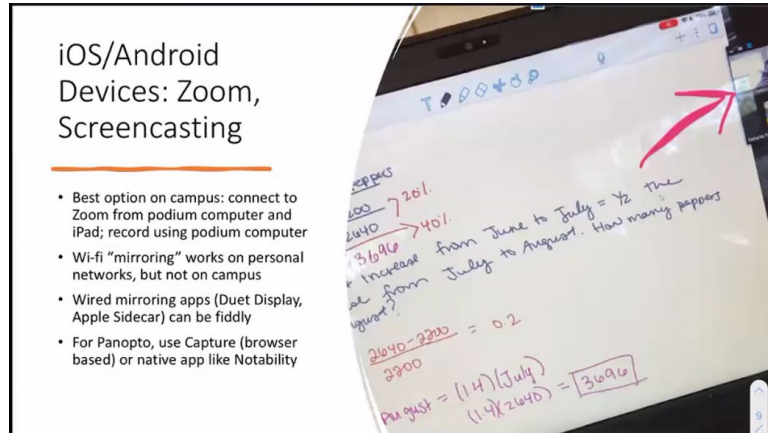 iOS/Android
Devices: Zoom,
Screencasting
• Best option on campus: connect to
Zoom from podium computer and
iPad; record using podium computer
• Wi-fi “mirroring” works on personal
networks, but not on campus
• Wired mirroring apps (Duet Display,
Apple Sidecar) can be fiddly
• For Panopto, use Capture (browser
based) or native app like Notability
T
eppers
200
20%
2640
40%
3696
increase from June to July = 1/2 the
from July to August. How many peppers
ugust?
2640-2200
= 0.2
2200
August = (1.4)(July)
(1.4)(2640) = 3696
9